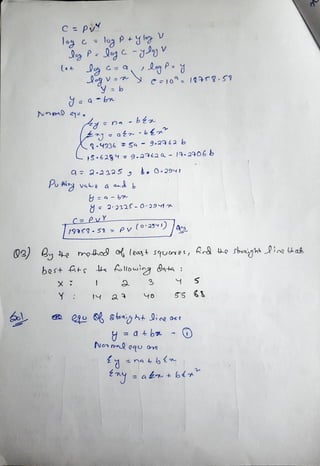 C = PVγ
log C = log P + γ log V
log P = log C - γ log V
let log C = a, log P = y
log V = x
γ = b
C = 10ᵃ = 18758.59
y = a - bx
Normal equ.
Σy = na - bΣx
Σxy = aΣx - bΣx²
8.4236 = 5a - 9.2762 b
15.6284 = 9.2762a - 17.2706 b
a = 2.2325, b = 0.2941
Putting value a and b
y = a - bx
y = 2.2325 - 0.2941x
C = PVγ
18758.59 = PV (0.2541) Ans
Q3) By the method of least squares, find the straight line that
best fits the following data:
x: 1 2 3 4 5
Y: 14 27 40 55 68
Sol equ of straight line are
y = a + bx - ①
Normal equ are
Σy = na + bΣx
Σxy = aΣx + bΣx²